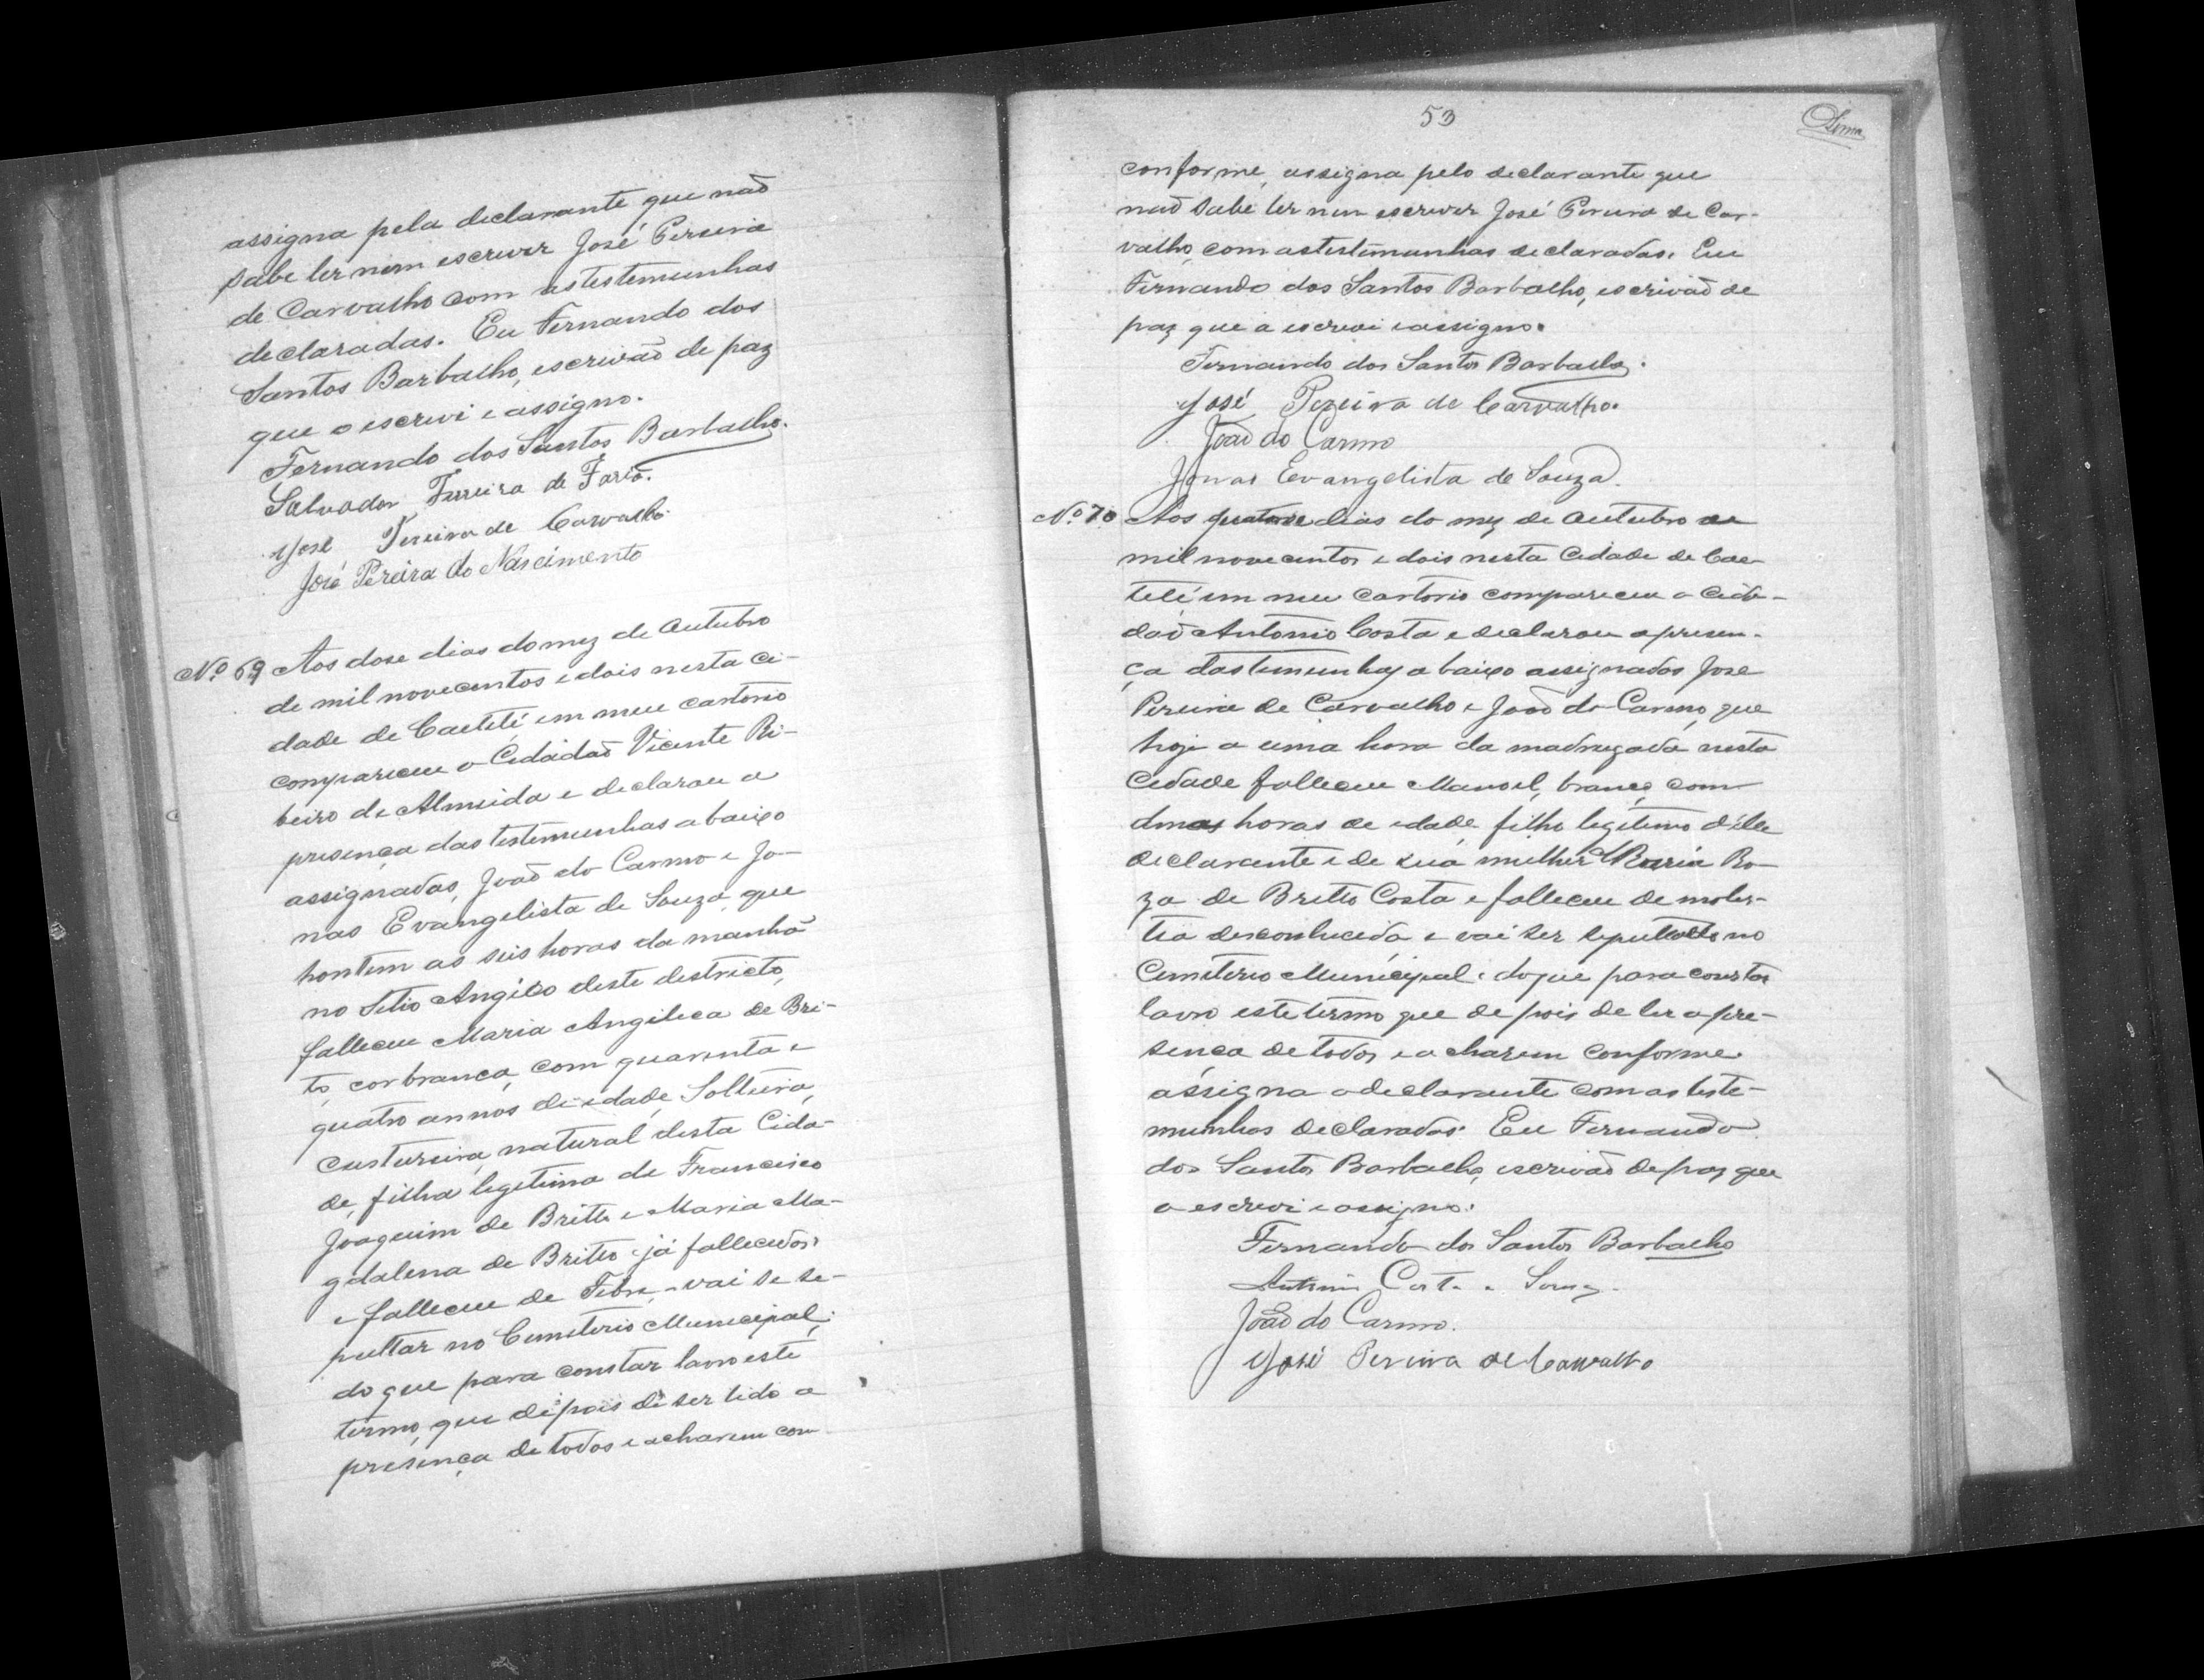 assigna pela declarante que não
sabe ler nem escrever José Pereira
de Carvalho com as testemunhas
declaradas. Eu Fernando dos
Santos Barbalho, escrivão de paz
que o escrevi e assigno.
Fernando dos Santos Barbalho.
Salvador Ferreira de Faria.
José Pereira de Carvalho
José Pereira do Nascimento
Nº 69 Aos dose dias do mez de Outubro
de mil novecentos e dois nesta ci-
dade de Caetité em meu cartorio
compareceu o Cidadão Vicente Ri-
beiro de Almeida e declarou a
presença das testemunhas abaixo
assignadas, João do Carmo e Jo-
nas Evangelista de Souza, que
hontem as seis horas da manhã
no Sitio Angico deste destricto,
falleceu Maria Angelica de Bri-
to, cor branca, com quarenta e
quatro annos de idade, Solteira,
custureira, natural desta Cida-
de, filha legitima de Francisco
Joaquim de Britto e Maria Ma-
gdalena de Britto já fallecidos
e falleceu de Febre, vai se se-
pultar no Cemiterio Municipal;
do que para constar lavro este
termo, que depois de ser lido a
presença de todos e acharem con
53
Lima
conforme, assigna pelo declarante que
não sabe ler nem escrever José Pereira de Car-
valho, com as testimunhas declaradas. Eu
Fernando dos Santos Barbalho, escrivão de
paz que a escrevi e assigno.
Fernando dos Santos Barbalho.
José Pereira de Carvalho.
João do Carmo
Jonas Evangelista de Souza.
Nº 70 Aos quatorze dias do mez de Outubro de
mil novecentos e dois nesta Cidade de Cae-
tité em meu Cartorio compareceu o Cida-
dão Antonio Costa e declarou a presen-
ça das temunhas abaixo assignados José
Pereira de Carvalho e João do Carmo, que
hoje a uma hora da madrugada nesta
Cidade falleceu Manoel, branco, com
duas horas de idade filho legitimo d'elle
declarante e de sua mulher Maria Ro-
za de Britto Costa e falleceu de moles-
tia desconhecida e vai ser sepultado no
Cemiterio Municipal: do que para constar
lavro este termo que depois de ler a pre-
sença de todos e acharem conforme
assigna o declarante com as teste-
munhas declaradas. Eu Fernando
dos Santos Barbalho, escrivão de paz que
o escrevi e assigno.
Fernando dos Santos Barbalho
Antonio Costa e Souza.
João do Carmo.
José Pereira de Carvalho